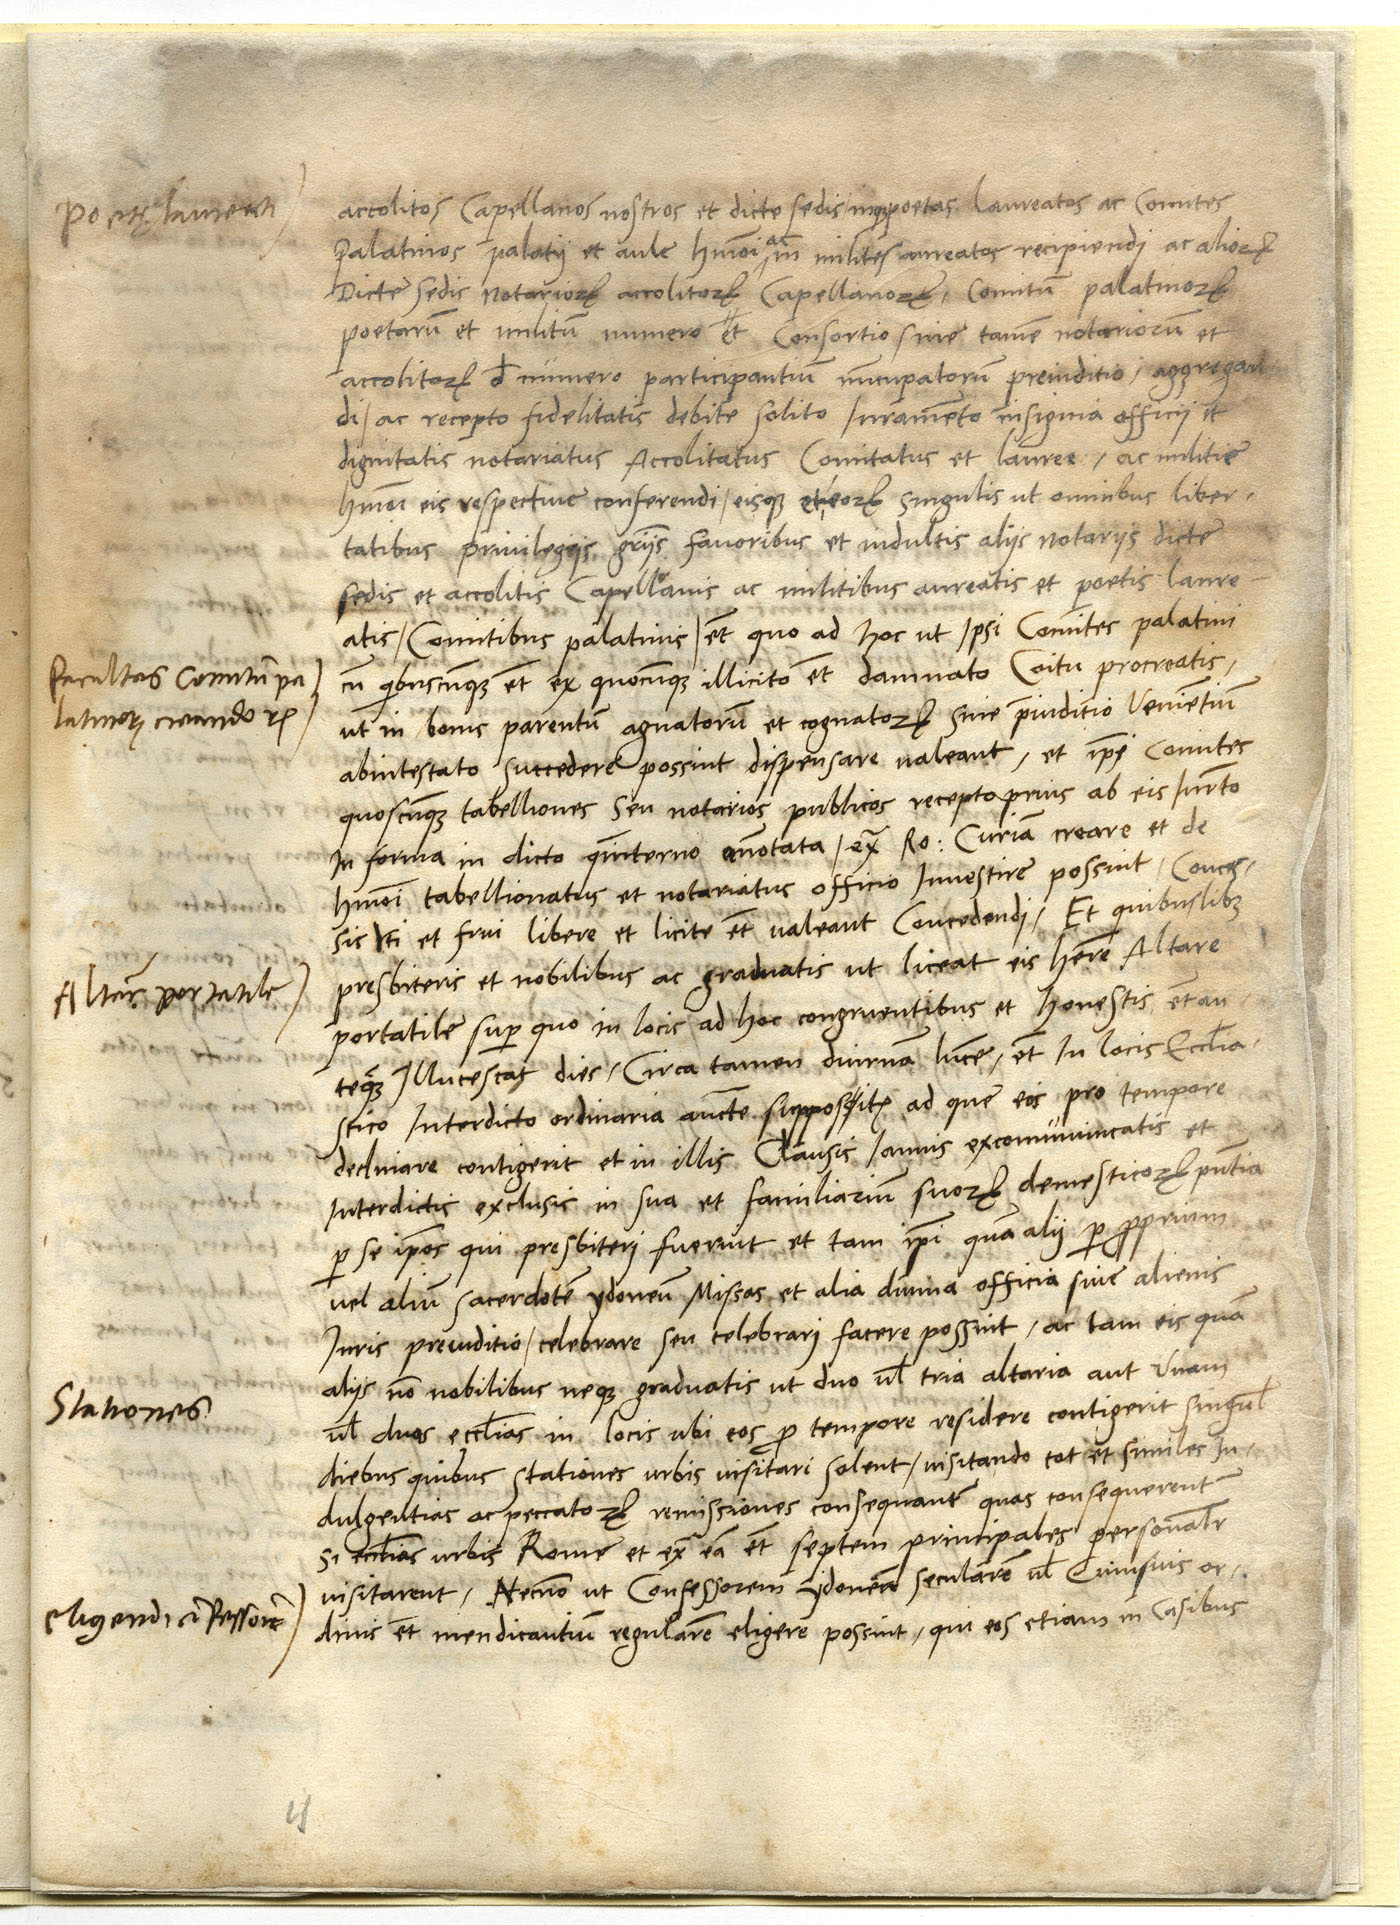 Poetę laureati
accolitos Capellanos nostros et dicte sedis / poetas Laureatos ac Comites
Palatinos palatij et aule hmōi ac milites aureatos recipiendi ac alioꝝ
Dicte Sedis Notarioꝝ accolitoꝝ Capellanoꝝ, Comitū palatinoꝝ
poetarū et militū numero et Consortio / sine tamē notariorū et
accolitoꝝ d numero participantiū nūcupatorū preiuditio, aggregan
di / ac recepto fidelitatis debite solito Iuramēto insignia officij et
dignitatis notariatus Accolitatus Comitatus et lauree, ac militie
hmōi eis respectiue conferendi / eisqꝫ eoꝝ singulis ut omnibus liber,
tatibus priuilegijs grīis fauoribus et indultis alijs Notarijs dicte
sedis et accolitis Capellanis ac militibus aureatis et poetis laure-
atis / Comitibus palatinis / et quo ad hoc ut Ipsi Comites palatini
Facultas Comitū pa
latinoꝝ creandoꝝ
cū qbuscūqꝫ et ex quocūqꝫ illicito et damnato Coitu procreatis,
ut in bonis parentū agnatorū et cognatoꝝ sine p̄iuditio Venietiū
abintestato succedere possint dispensare ualeant, et ip̄i Comites
quoscūqꝫ tabelliones Seu notarios publicos recepto prius ab eis Iurto
In forma in dicto qinterno annotata / ex̄ Ro: Curiā creare et de
hmōi tabellionatus et notariatus officio Inuestire possint, Conces,
sis uti et frui libere et licite et ualeant Concedendi, Et quibuslibꝫ
Altarē portatile
presbiteris et nobilibus ac graduatis ut liceat eis hēre Altare
portatile sup quo in locis ad hoc congruentibus et honestis et an,
teqꝫ Illucescat dies, Circa tamen diurnā lucē, et In locis Ecclīa,
stico Interdicto ordinaria aucte supposit ad que eos pro tempore
declinare contigerit et in illis Clausis Ianuis excomunicatis et
Interdictis exclusis in sua et familiariū suoꝝ domesticoꝝ pn̄tia
p se ip̄os qui presbiteri fuerint et tam ip̄i quā alij p proprium
uel aliū sacerdotē ydoneū Missas et alia diuina officia sine alienis
Iuris preiuditio / celebrare seu celebrari facere possint, ac tam eis quā
alijs nō nobilibus neqꝫ graduatis ut duo ul tria altaria aut Vnam
Stationes
ul duas ecclīas in locis ubi eos p tempore residere contigerit singul
diebus quibus stationes urbis uisitari solent / uisitando tot et similes In,
dulgentias ac peccatoꝝ remissiones consequant quas consequerent
si ecclīas urbis Rome et ex̄ eā et septem principales personalr
uisitarent, Necnō ut Confessorem ydoneū secularē ul Cuiusuis or,
Eligendi cōfessorē
dinis et mendicantiū regularē eligere possint, qui eos etiam in Casibus